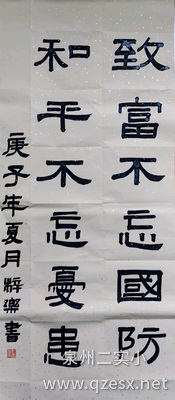 致富不忘國防
和平不忘憂患
庚子年夏月梓樂書
泉州二实小
www.qzesx.net